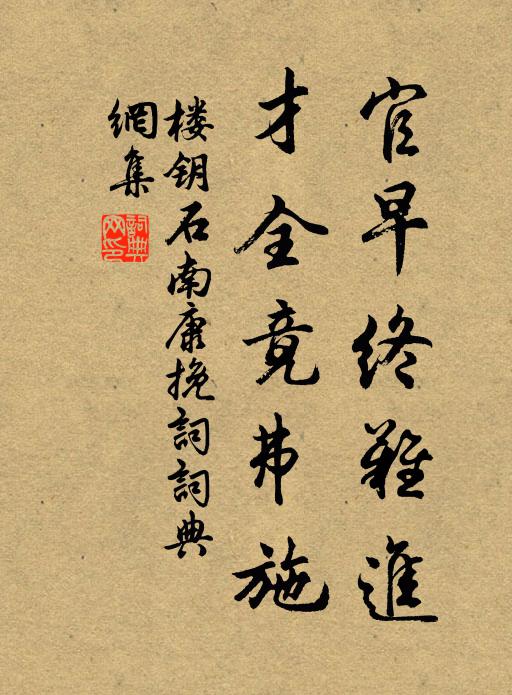 官早终難進
才全竟弗施
楼钥石南康挽詞詞典
網集
詞典网印